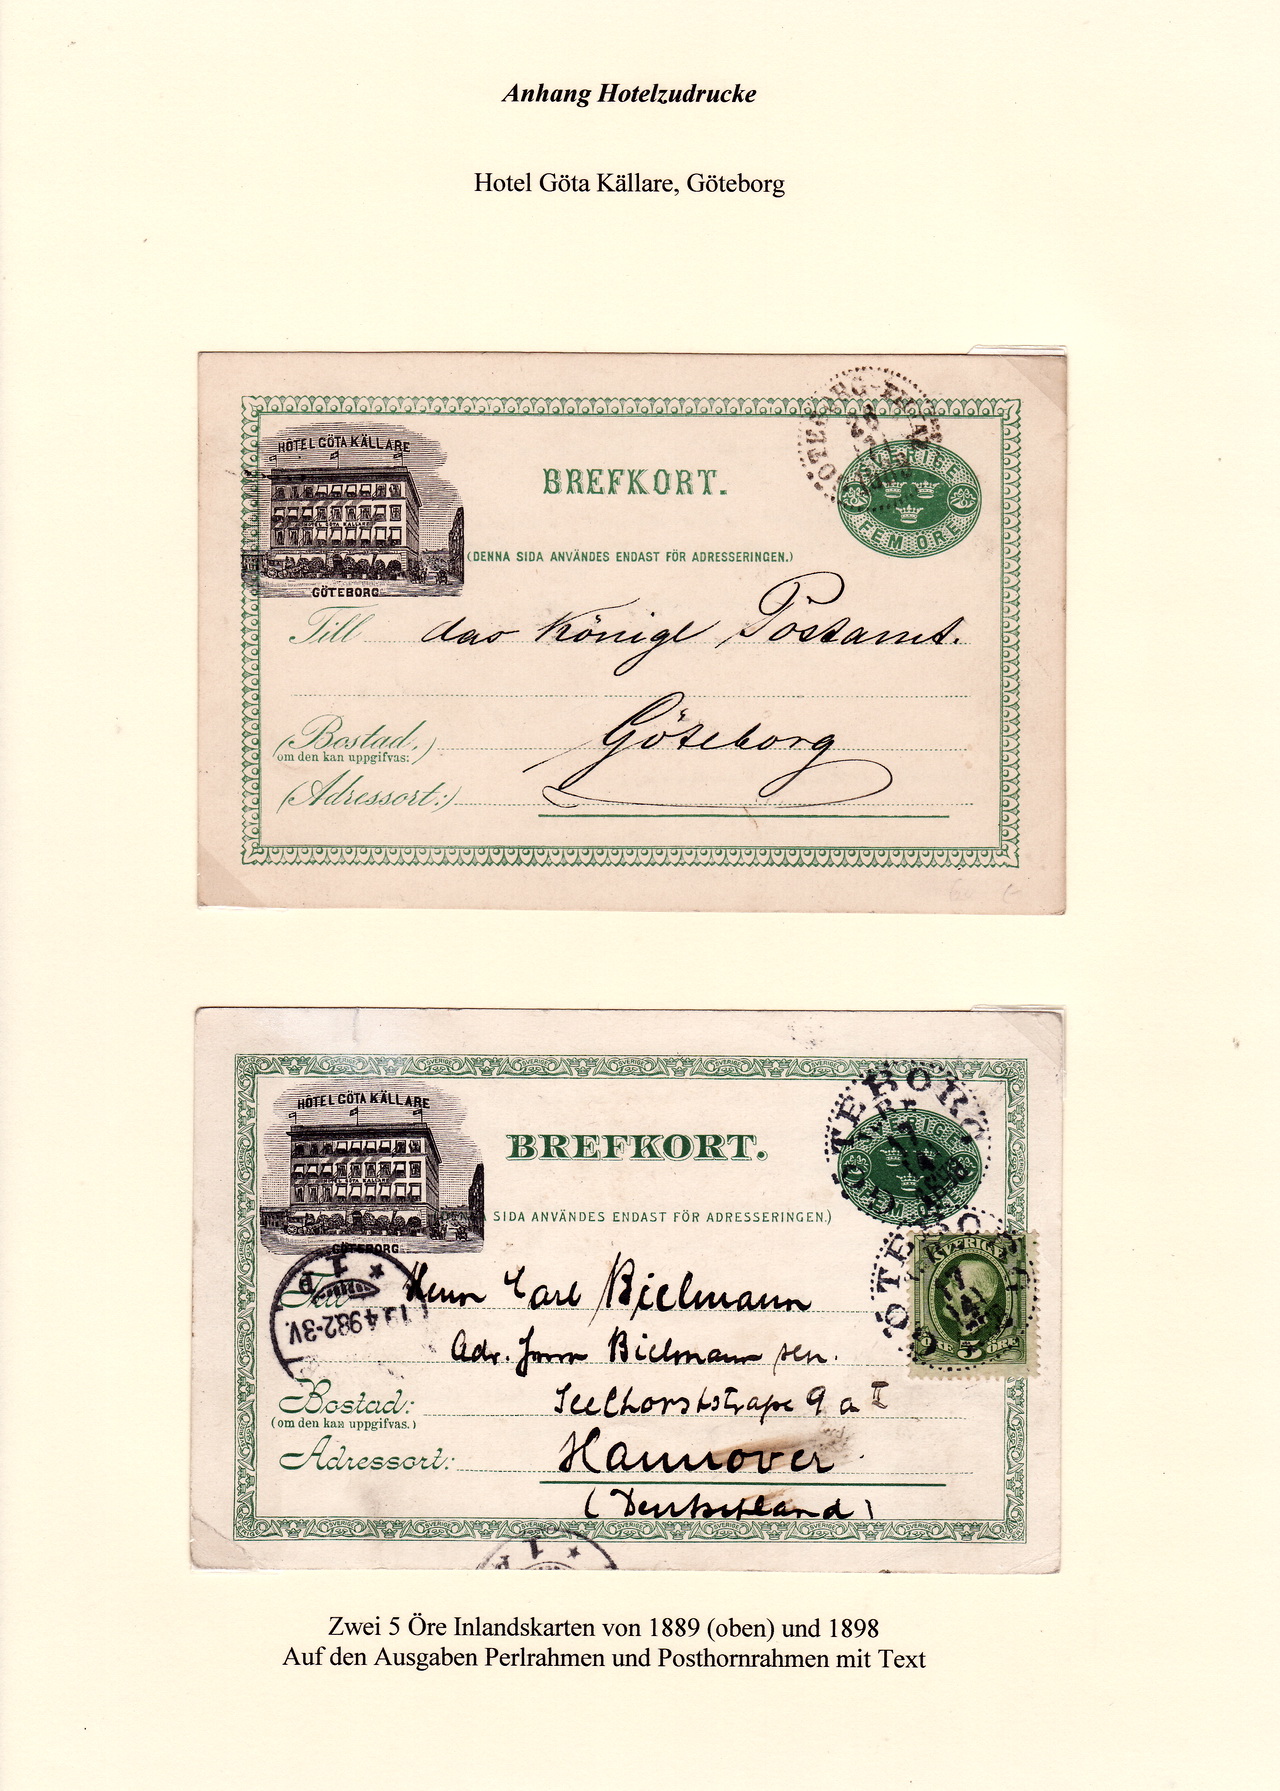 Anhang Hotelzudrucke
Hotel Göta Källare, Göteborg
HÔTEL GÖTA KÄLLARE
HOTEL GÖTA KÄLLARE
GÖTEBORG
BREFKORT.
(DENNA SIDA ANVÄNDES ENDAST FÖR ADRESSERINGEN.)
SVERIGE
FEM ÖRE
Till das Königl Postamt.
Göteborg
(Bostad.)
om den kan uppgifvas:
(Adressort:)
HÔTEL GÖTA KÄLLARE
HOTEL GÖTA KÄLLARE
GÖTEBORG
BREFKORT.
SIDA ANVÄNDES ENDAST FÖR ADRESSERINGEN.)
GÖTEBORG
SVERIGE
1898
SVERIGE
5
ÖRE
Till Herrn Carl Bielmann
Adr. Herrn Bielmann sen.
Bostad: Seelhorststraße 9 a I
(om den kan uppgifvas.)
Adressort: Hannover
(Deutschland)
Zwei 5 Öre Inlandskarten von 1889 (oben) und 1898
Auf den Ausgaben Perlrahmen und Posthornrahmen mit Text